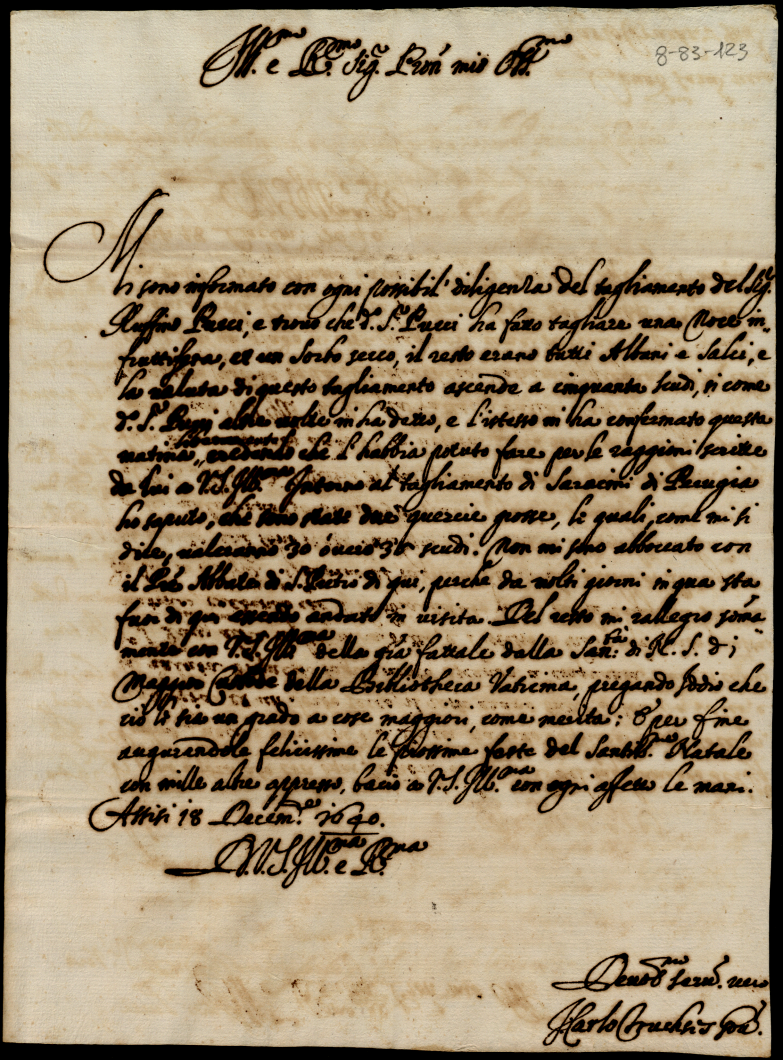 8-83-123
Ill.mo e R.mo Sig.r Pron mio Oss.mo
Mi sono informato con ogni possibil' diligenza del tagliamento del Sig.r
Ruffino Pucci, e trovo che d. S.r Pucci ha fatto tagliare una Noce in-
fruttifera, et un Sorbo secco, il resto erano tutti Albani e Salci, e
la valuta di questo tagliamento ascende a cinquanta scudi, si come
d. S.r Pucci altre volte mi ha detto, e l'istesso mi ha confermato questa
matina, che l habbia potuto fare per le raggioni scritte
da lui a V.S. Ill.ma Intorno al tagliamento di Saracini di Perugia
ho saputo, che sono state due quercie grosse, le quali, come mi si
dice, valeranno 30 ò vero 35 scudi. Non mi sono abboccato con
il Abbate di S. Pietro di qui, perche da molti giorni in qua sta
fuor di qui andato in visita. Del resto mi rallegro soma
mente con V.S. Ill.ma della gia fattale dalla San.tà di N. S. di
della Bibliotheca Vaticana, pregando Iddio che
ciò le sia un grado a cose maggiori, come merita: & per fine
augurandole felicissime le feste del Santiss.mo Natale
con mille altre appresso, bacio a V.S. Ill.ma con ogni affetto le mani.
Assisi 18 Decem.re 1640.
D.V.S. Ill.ma e R.ma
Devot.mo serv.
Carlo